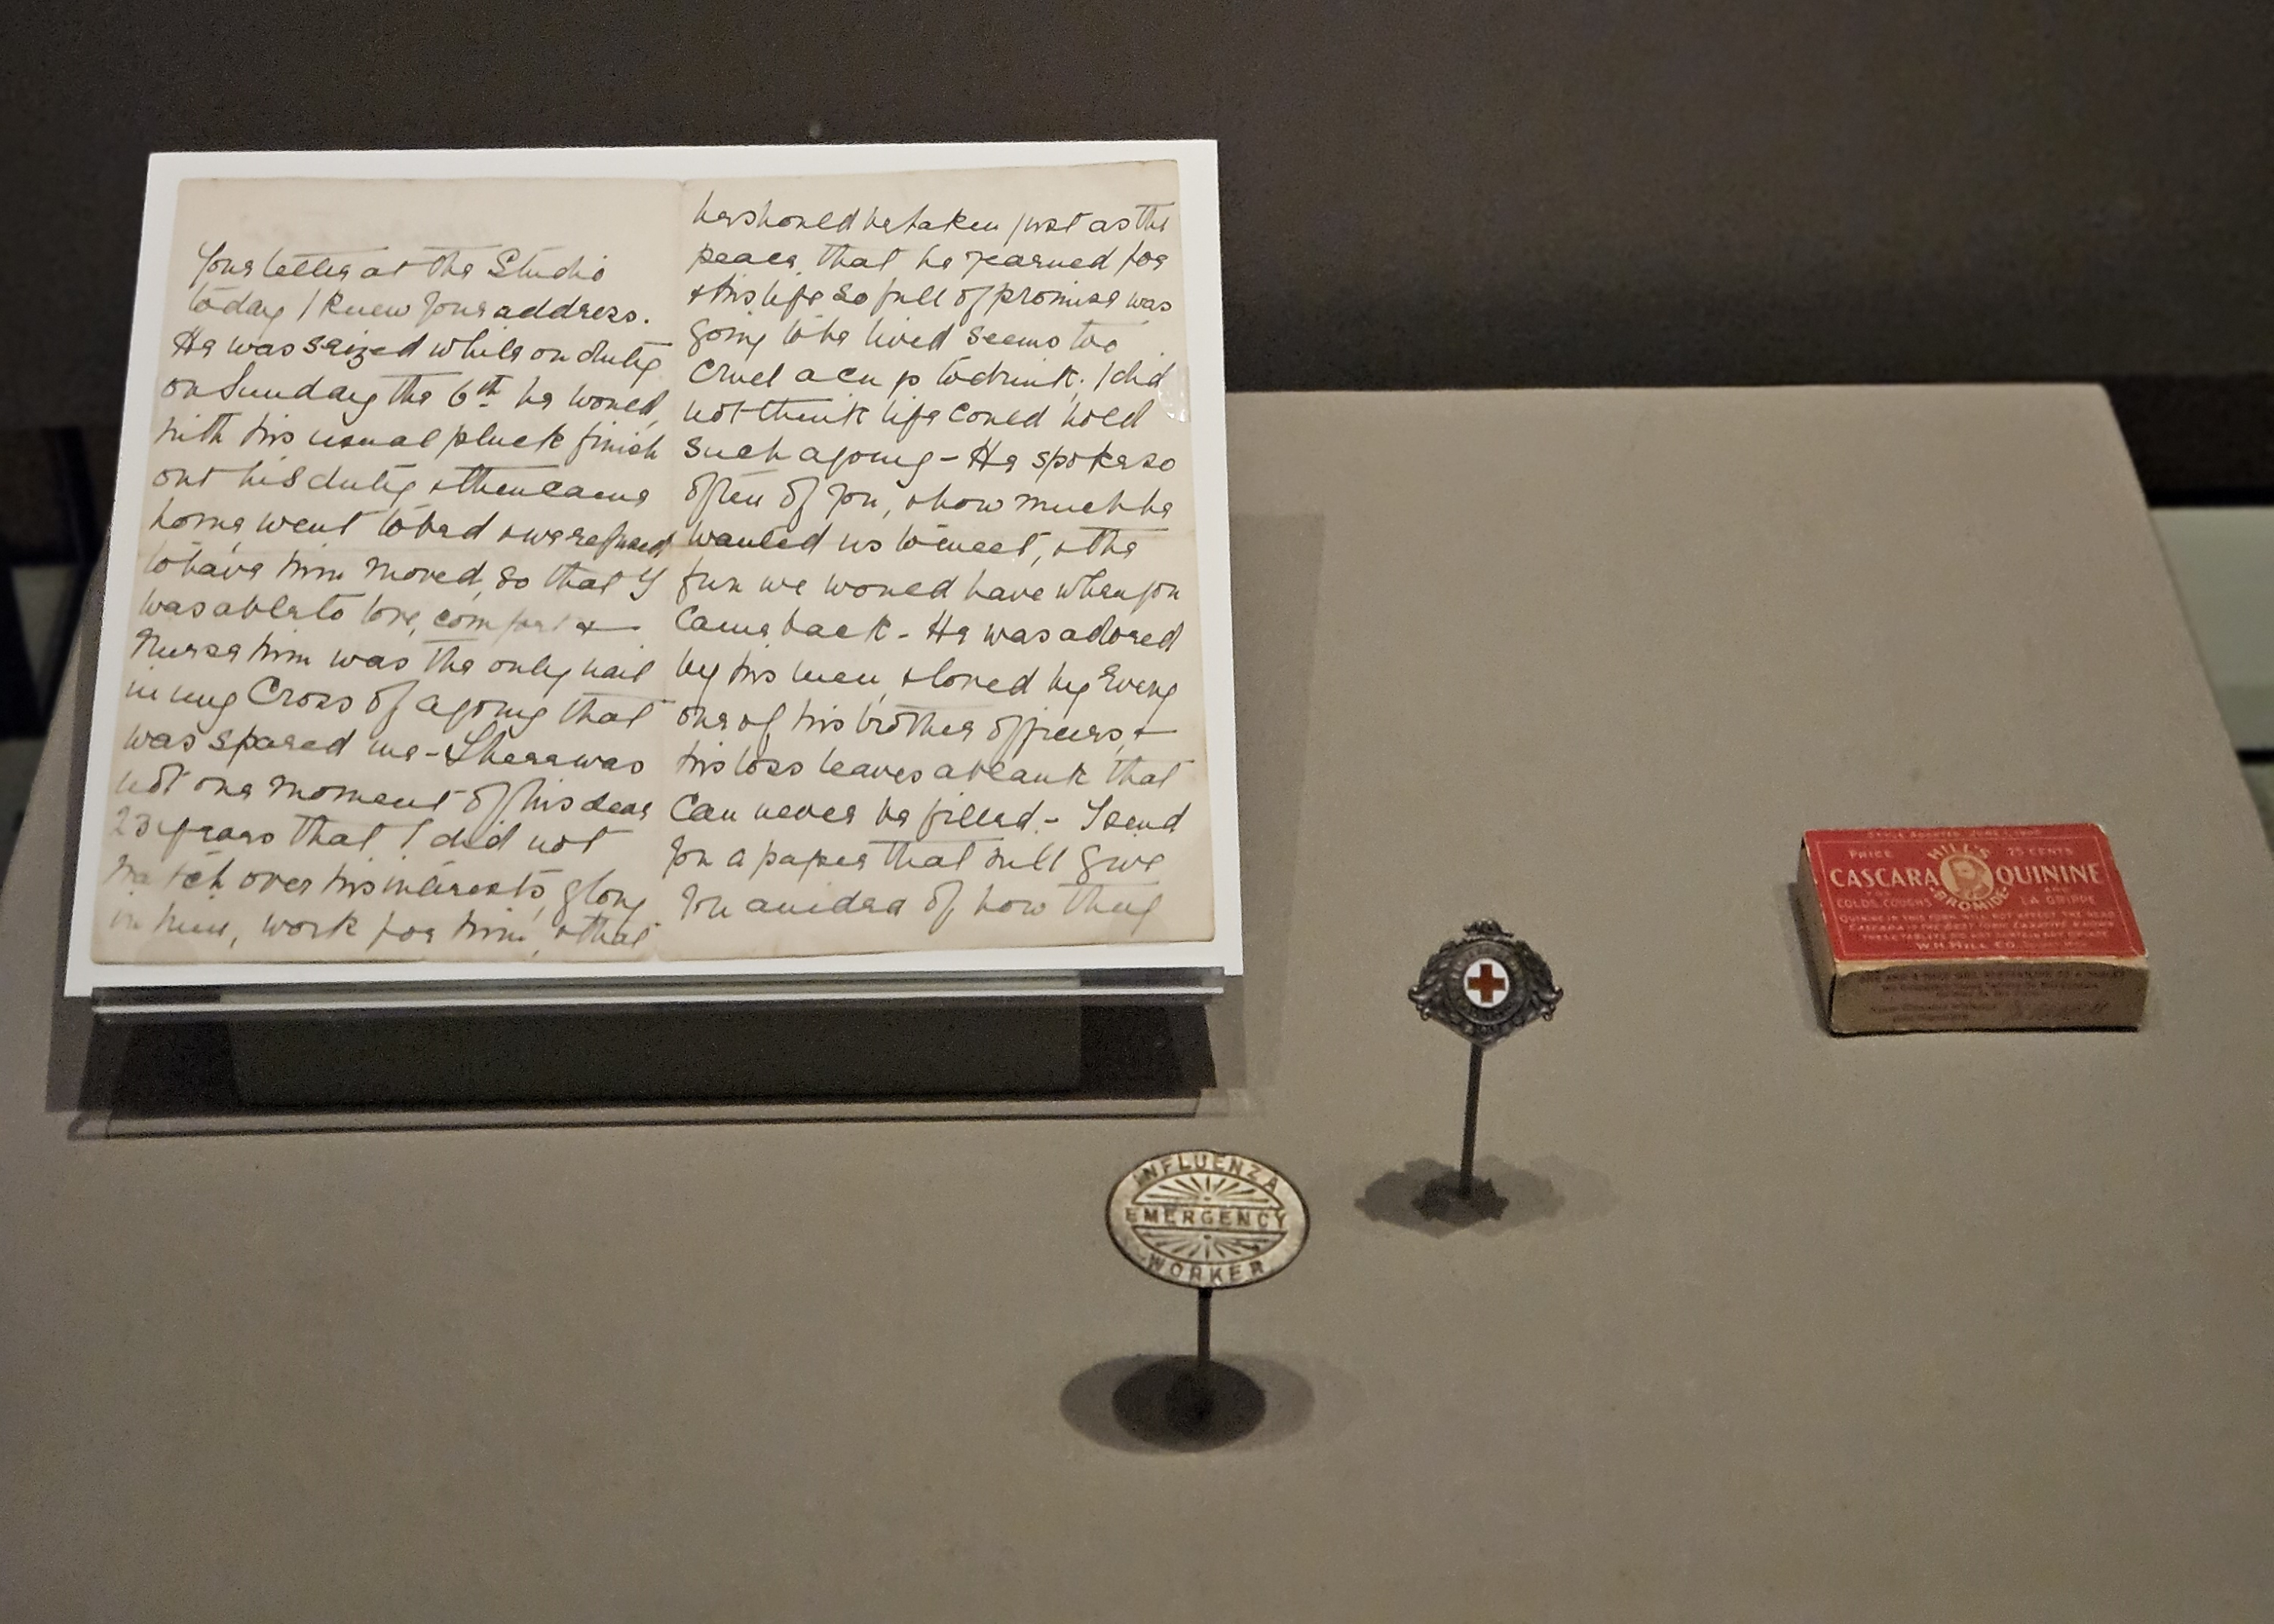 Your letter at the Studio
today I knew your address.
He was seized while on duty
on Sunday the 6th he would,
with his usual pluck finish
out his duty & then came
home, went to bed & we refused
to have him moved, so that I
was able to love, comfort &
Nurse him was the only nail
in my Cross of agony that
was spared me - There was
not one moment of his dear
23 years that I did not
watch over his interests, glory
in him, work for him, & that
he should be taken just as the
peace that he yearned for
& his life so full of promise was
going to be lived seems too
cruel a cup to drink; I did
not think life could hold
such agony - He spoke so
often of you, & how much he
wanted us to meet, & the
fun we would have when you
came back - He was adored
by his men, & loved by Every
one of his brother officers, &
his loss leaves a blank that
can never be filled. - I send
you a paper that will give
you an idea of how they
INFLUENZA
EMERGENCY
WORKER
STYLE ADOPTED JUNE 1, 1900
PRICE HILL'S 25 CENTS
CASCARA QUININE
BROMIDE
FOR AND
COLDS, COUGHS LA GRIPPE
QUININE IN THIS FORM WILL NOT AFFECT THE HEAD
CASCARA IS THE BEST TONIC LAXATIVE KNOWN
THESE TABLETS DO NOT CONTAIN ANY OPIATE
W.H. HILL CO.